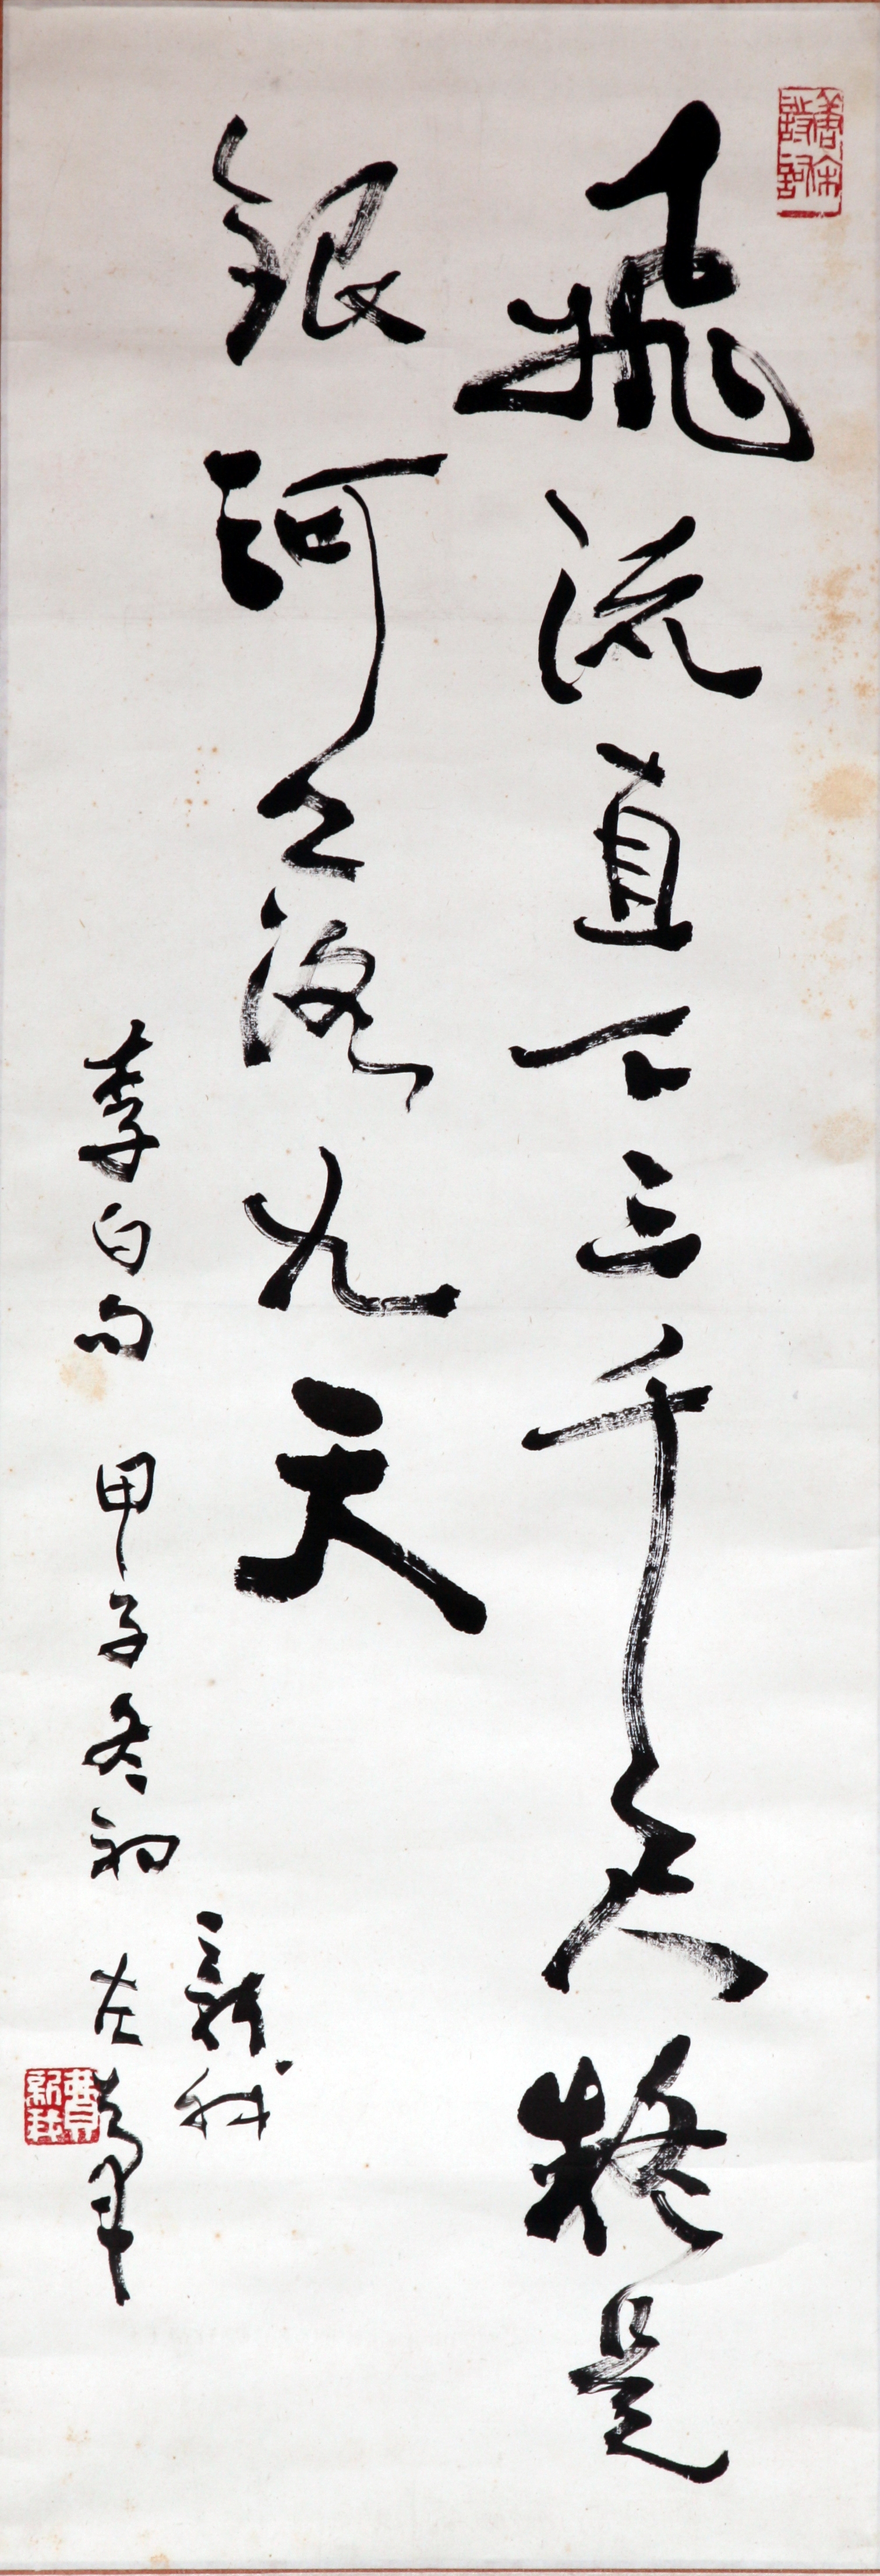 飛流直下三千尺擬是
銀河之落九天
李白句 甲子冬初
新我
左筆
費新我